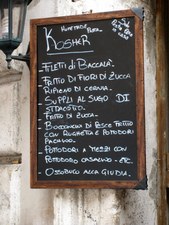 Kosher
- Filetti di Baccalà.
- Fritto di Fiori di Zucca
Ripieno di Cernia.
- Supplì al sugo di
Stracotto.
- Fritto di Zucca.
- Bocconcini di Pesce Fritto
con Rughetta e Pomodori
Pachino.
- Pomodori a mezzi con
Pomodoro Casalino - etc.
- Ossobuco alla Giudia.